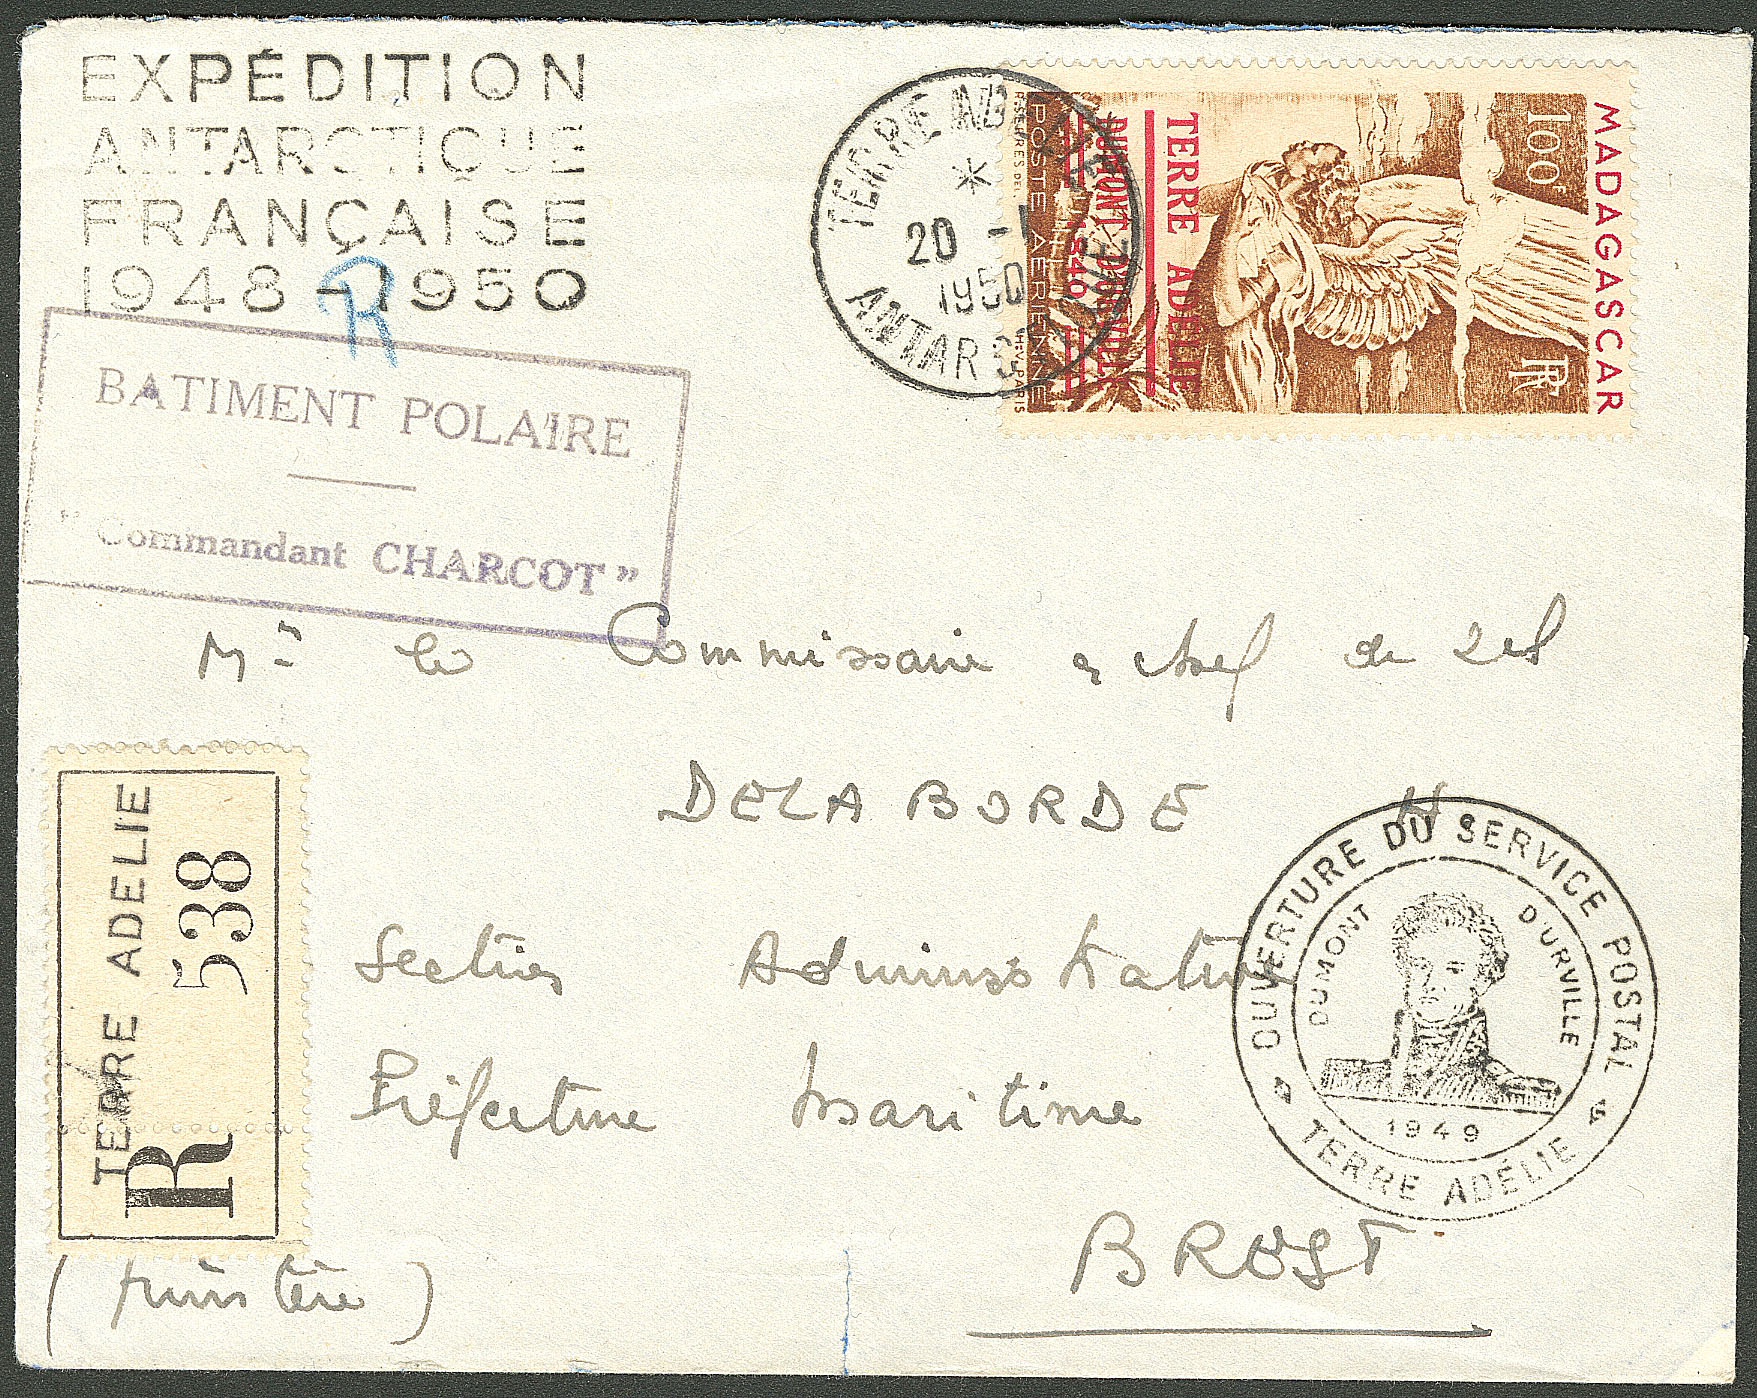 EXPÉDITION
ANTARCTIQUE
FRANÇAISE
1948-1950
R
BATIMENT POLAIRE
"Commandant CHARCOT"
TERRE ADELIE
*
20 -1
1950
ANTARCTIQUE
MADAGASCAR
100F
RF
TERRE ADÉLIE
DUMONT D'URVILLE
1840
POSTE AERIENNE
Mr le Commissaire chef de
DELABORDE H.
Section Administrative
Préfecture Maritime
BREST
TERRE ADELIE
R 538
OUVERTURE DU SERVICE POSTAL
DUMONT D'URVILLE
1949
TERRE ADÉLIE